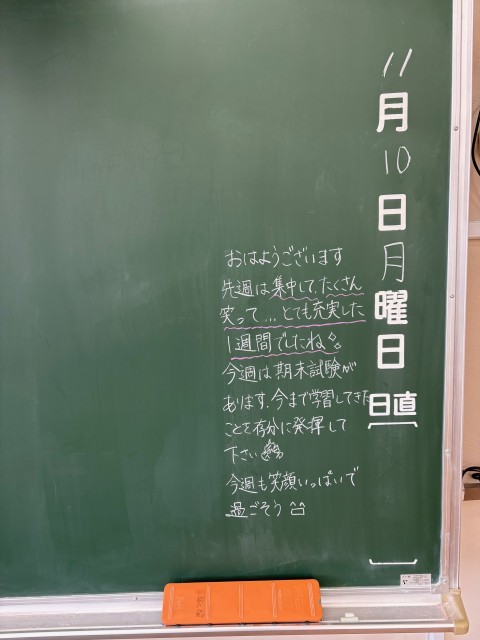 11月10日月曜日
日直
おはようございます
先週は集中して、たくさん
笑って…とても充実した
1週間でしたね
今週は期末試験が
あります。今まで学習してきた
ことを存分に発揮して
下さい
今週も笑顔いっぱいで
過ごそう